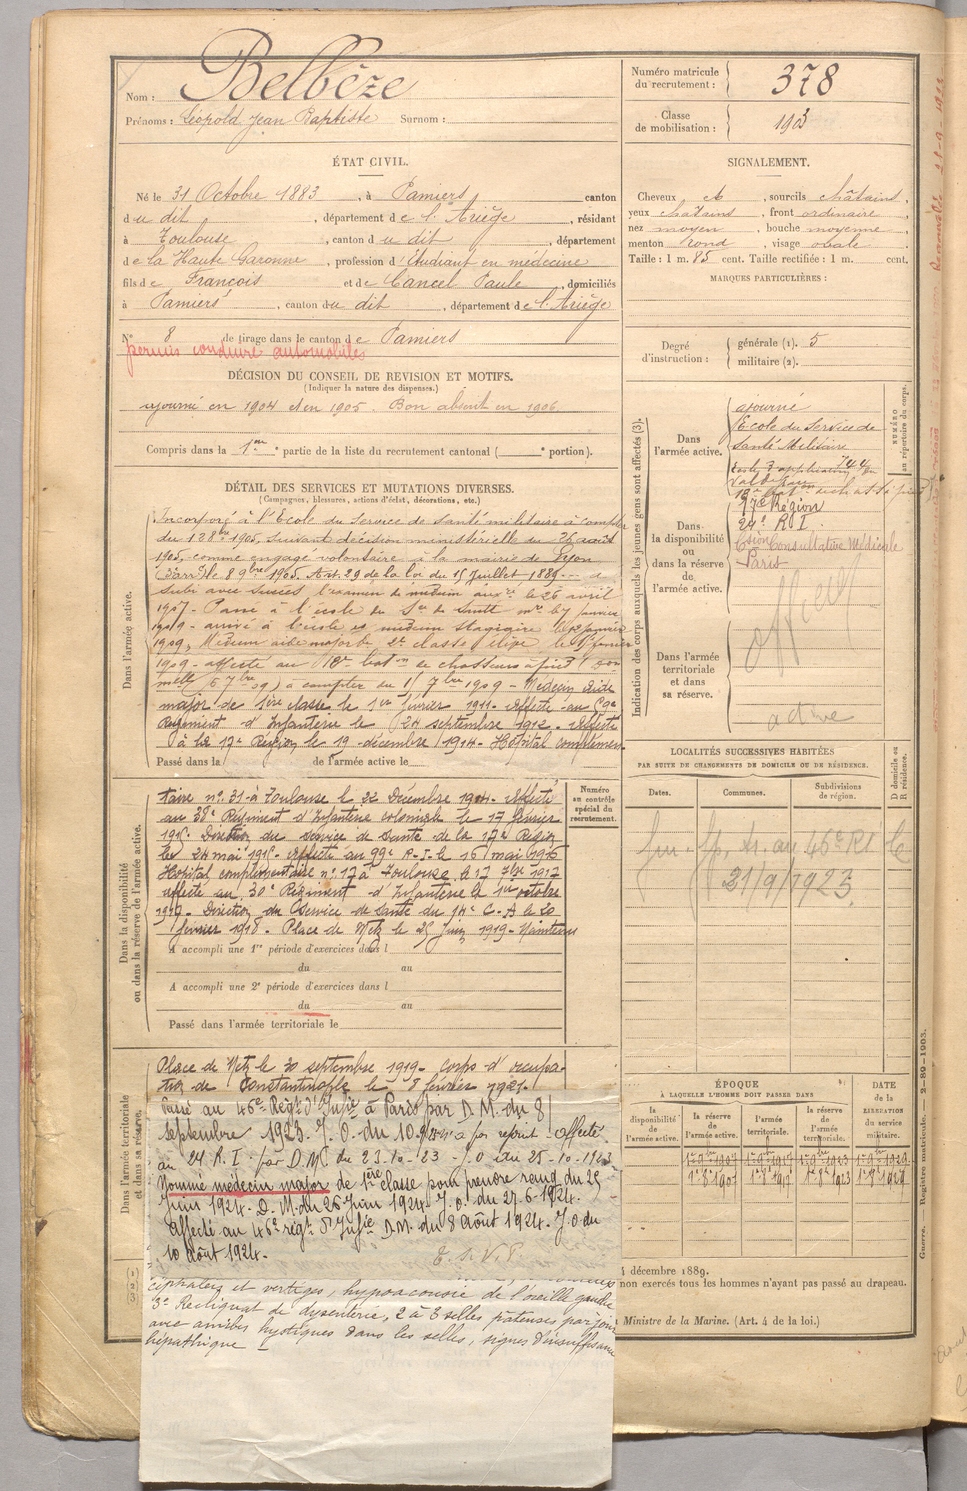 Nom : Belbèze
Prénoms : Léopold Jean Baptiste Surnom :
Numéro matricule du recrutement : 378
Classe de mobilisation : 1903
ÉTAT CIVIL.
Né le 31 Octobre 1883, à Pamiers canton
du dit, département de l'Ariège, résidant
à Toulouse, canton du dit département
de la Haute Garonne, profession d'étudiant en médecine
fils de François et de Cancel Paule, domiciliés
à Pamiers, canton du dit, département de l'Ariège
N° 8 de tirage dans le canton de Pamiers
permis conduire automobiles
SIGNALEMENT.
Cheveux et, sourcils châtains,
yeux châtains, front ordinaire
nez moyen, bouche moyenne,
menton rond, visage ovale
Taille : 1 m. 85 cent. Taille rectifiée : 1 m. cent.
MARQUES PARTICULIÈRES :
Degré d'instruction : générale (1). 5
militaire (2).
DÉCISION DU CONSEIL DE REVISION ET MOTIFS.
(Indiquer la nature des dispenses.)
ajourné en 1904 et en 1905. Bon absent en 1906
Compris dans la 1re partie de la liste du recrutement cantonal ( e portion).
DÉTAIL DES SERVICES ET MUTATIONS DIVERSES.
(Campagnes, blessures, actions d'éclat, décorations, etc.)
Dans l'armée active.
Incorporé à l'Ecole du Service de santé militaire à compter
du 12 8bre 1905, suivant décision ministerielle du 26 août
1905, comme engagé volontaire à la mairie de Lyon
le 8 9bre 1905. Art. 29 de la loi du 15 Juillet 1889
subi avec succès l'examen de médecin auxre le 26 avril
1907. Passé à l'école du
1909 - arrivé à l'école médecin stagiaire
1909, Médecin aide major de 2e classe février
1909 - affecté au 18e baton de chasseurs à pied
à compter du 7bre 1909 - Médecin Aide
major de 1ère classe le 1er février 1911 - Affecté au
Régiment d'Infanterie le 24 septembre 1912 - Affecté
à la 17e Région le 19 décembre 1914 - Hôpital complémen-
Passé dans la de l'armée active le
Dans la disponibilité ou dans la réserve de l'armée active.
taire n° 31 à Toulouse le 22 Décembre 1914 - Affecté
au 38e Régiment d'Infanterie coloniale le 17 février
Direction du Service de Santé de la 17e Région
le 24 mai Affecté au 99e R.I. le 16 mai
Hôpital complémentaire n° 17 à Toulouse le 17 7bre 1917
Affecté au 30e Régiment d'Infanterie le 1er octobre
Direction du Service de Santé du 14e C.A le 20
février 1918 - Place de Metz le 25 Juin 1919 - Maintenu
A accompli une 1re période d'exercices dans l
du au
A accompli une 2e période d'exercices dans l
du au
Passé dans l'armée territoriale le
Numéro au contrôle spécial du recrutement.
Dans l'armée territoriale et dans sa réserve.
Place de Metz le 30 septembre 1919 - corps d'occupa-
tion de Constantinople le 8 février 1921.
Passé au 46e Régt d'Infie à Paris par D.M. du 8
septembre 1923. J.O. du 10.9
au 24 R.I. par D.M. du 23-10-23 - J.O du 25-10-1923
Nommé médecin major de 1ère classe pour prendre rang du 25
Juin 1924. D.M. du 26 Juin 1924. J.O. du 27.6.1924.
Affecté au 46e régt d'Infie D.M. du 8 Août 1924. J.O du
10 Août 1924.
T.S.V.P.
céphalées et vertiges, hypoacousie de l'oreille gauche
3° Reliquat de dysenterie, 2 à 3 selles pâteuses par jour
avec amibes kystiques dans les selles, signes d'insuffisance
hépathique
Indication des corps auxquels les jeunes gens sont affectés (3).
NUMÉRO au répertoire du corps.
Dans l'armée active.
ajourné
Ecole du Service de
Santé Militaire
Ecole d'application
Val de Grâce
18e Baton de chass à pied
Dans la disponibilité ou dans la réserve de l'armée active.
17e Région
24e R I
Con Consultative Médicale
Paris
officier
Dans l'armée territoriale et dans sa réserve.
active
LOCALITÉS SUCCESSIVES HABITÉES
PAR SUITE DE CHANGEMENTS DE DOMICILE OU DE RÉSIDENCE.
Dates.
Communes.
Subdivisions de région.
D domicile ou R résidence.
au 46e RI le
21/9/1923
ÉPOQUE
À LAQUELLE L'HOMME DOIT PASSER DANS
la disponibilité de l'armée active.
la réserve de l'armée active.
l'armée territoriale.
la réserve de l'armée territoriale.
DATE de la LIBÉRATION du service militaire.
décembre 1889.
non exercés tous les hommes n'ayant pas passé au drapeau.
Ministre de la Marine. (Art. 4 de la loi.)
Guerre. Registre matricule. 2-89-1903.